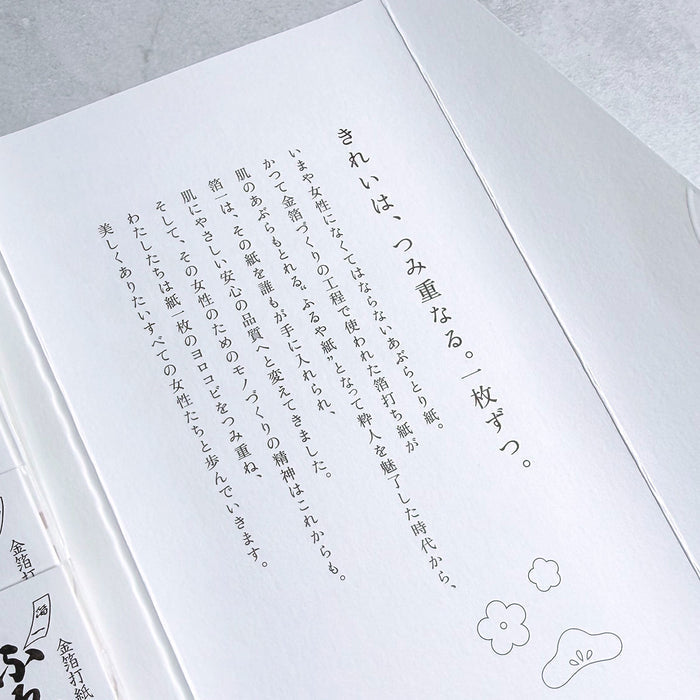 きれいは、つみ重なる。一枚ずつ。
いまや女性になくてはならないあぶらとり紙。
かつて金箔づくりの工程で使われた箔打ち紙が
肌のあぶらもとれる〝ふるや紙〟となって粋人を魅了した時代から、
箔一は、その紙を誰もが手に入れられ、
肌にやさしい安心の品質へと変えてきました。
そして、その女性のためのモノづくりの精神はこれからも。
わたしたちは紙一枚のヨロコビをつみ重ね、
美しくありたいすべての女性たちと歩んでいきます。
金箔打
箔一
金箔打紙
ふる